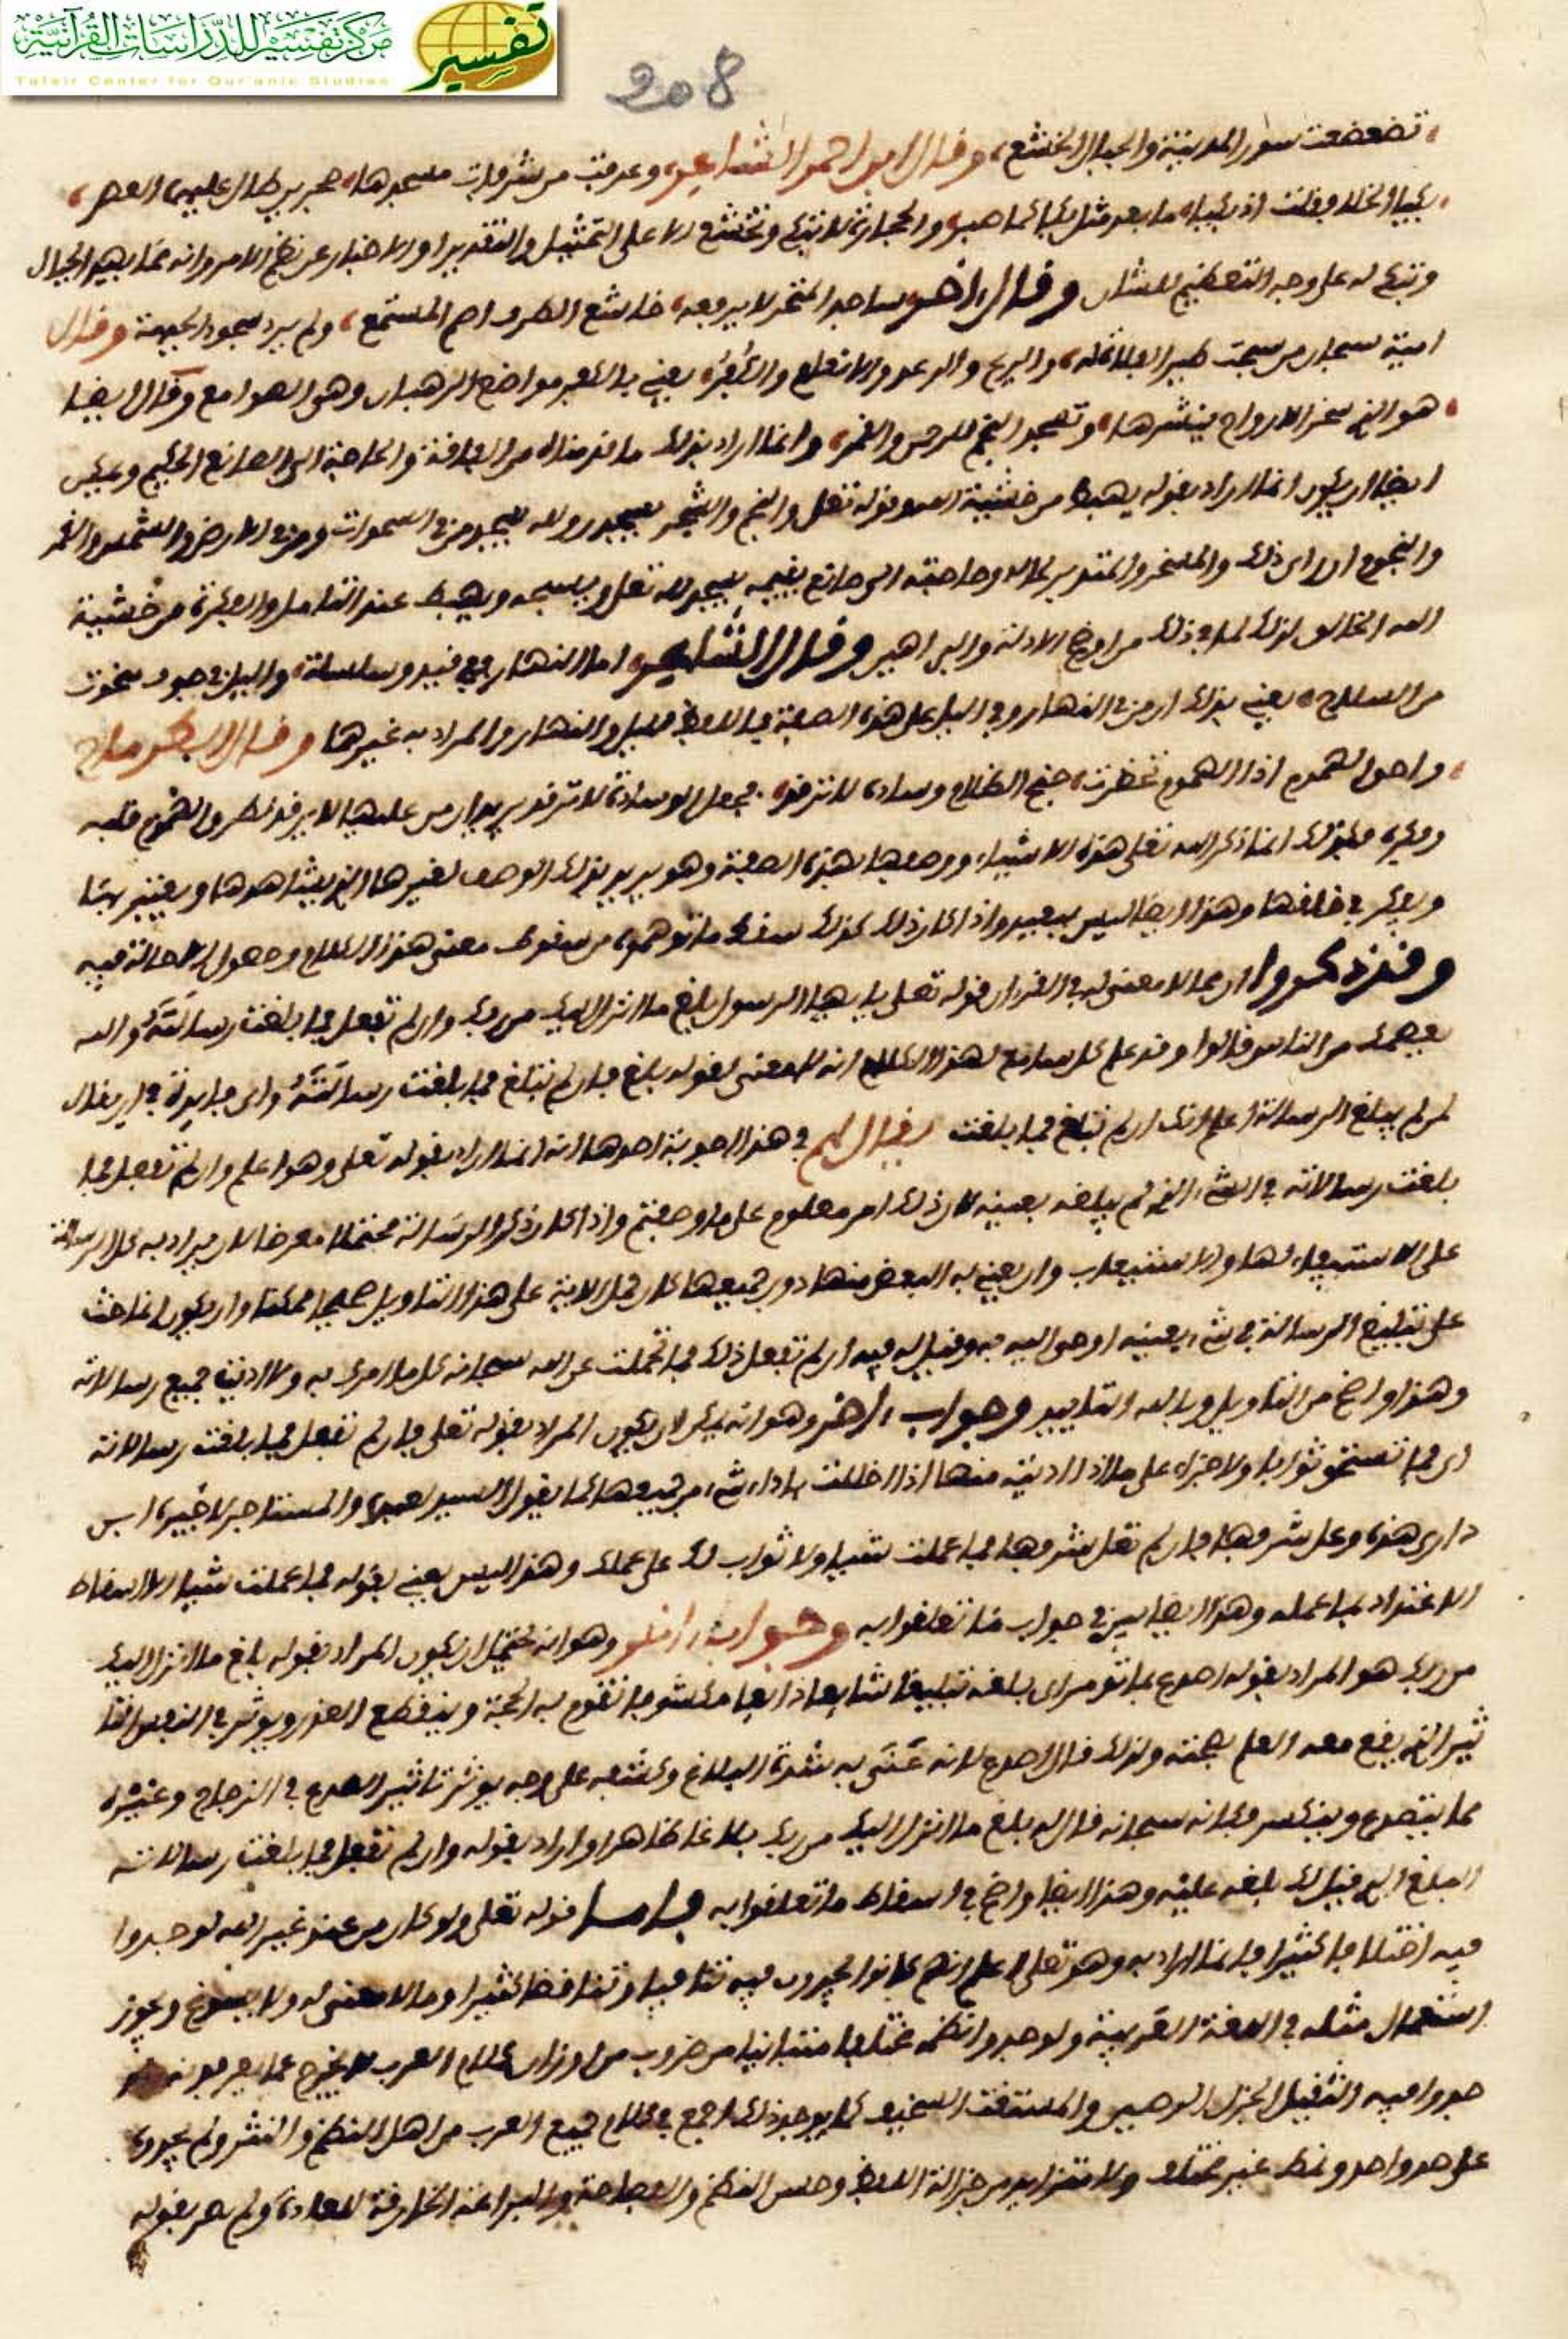 مركز تفسير للدراسات القرآنية
Tafsir Center for Qur'anic Studies
تفسير
208
تضعضعت سور المدينة والجبال الخشع وقال ابو احمر الشاعر وعرفت من شرفات مسجدها حجرين طال عليهما العصر
بكيا الخلا فقلت اذ بكيا ما بعد مثل بكاكما صبر والحجارة لا تبكي وتخشع الا على التمثيل والتقدير او الاخبار عن عظم الامر وانه مما يهد الجبال
وتبكي له على وجه التعظيم للشان وقال اخر ساجد المنخر لا يرفعه خاشع الطرف اصم المستمع ولم يرد سجود الجبهة وقال
امية سبحان من سبحت طير الفلاة له والريح والرعد والانعام والكفر يعني بالكفر مواضع الرهبان وهي الصوامع وقال ايضا
هو الذي سخر الارواح ينشرها وتسجد النجم للرحمن والقمر وانما اراد بذلك ما قدمناه من الفاقة والحاجة الى الصانع الحكيم ويمكن
ايضا ان يكون انما اراد بقوله يهبط من خشية الله وقوله تعلى والنجم والشجر يسجدان ولله يسجد من في السموات ومن في الارض والشمس والقمر
والنجوم ان راى ذلك والمفكر والمتدبر لحاله وحاجته الى صانع يقيمه يسجد لله تعلى ويسبحه ويهبط عند التامل والفكرة من خشية
الله الخالق لذلك لما في ذلك من اوضح الادلة والبراهين وقال الشاعر اما النهار ففي قيد وسلسلة والليل في جوف منحوت
من الساج يعني بذلك ان من في النهار وفي الليل على هذه الصفة فاللفظ لليل والنهار والمراد به غيرهما وقال الطرماح
واخو الهموم اذا الهموم تحضرت جنح الظلام وساده لا ترقد فجعل الوسادة لا ترقد يريد ان من عليها لا يرقد لطروق الهموم قلبه
وفكره فكذلك انما ذكر الله تعلى هذه الاشياء ووصفها بهذه الصفة وهو يريد بذلك الوصف لغيرها الذي يشاهدها ويعتبر بها
ويفكر في خلقها وهذا ايضا ليس ببعيد واذا كان ذلك كذلك سقط ما توهموه من سقوط معنى هذا الكلام وحصول الاحالة فيه
وقد ذكروا ان مما لا معنى له في القران قوله تعلى يايها الرسول بلغ ما انزل اليك من ربك وان لم تفعل فما بلغت رسالته والله
يعصمك من الناس قالوا وقد علم كل سامع لهذا الكلام انه لا معنى لقوله بلغ فان لم تبلغ فما بلغت رسالته واي فايدة في ان يقال
لمن لم يبلغ الرسالة اعلم انك ان لم تبلغ فما بلغت يقال لهم في هذا اجوبة احدها انه انما اراد بقوله تعلى وهو اعلم وان لم تفعل فما
بلغت رسالاته في الشيء الذي لم يبلغه بعينه لان ذلك امر معلوم على ما وصفتم واذا كان ذكر الرسالة محتملا معرضا لان يراد به كل الرسالة
على الاستيفاء لها والاستيعاب وان يعني به البعض منها دون جميعها كان حمل الاية على هذا التاويل صحيحا ممكنا وان يكون انما حث
على تبليغ الرسالة في شيء بعينه اوحي اليه به وقيل له فيه ان لم تفعل ذلك فما تحملت عن الله سبحانه كل ما امرك به ولا اديت جميع رسالاته
وهذا واضح من التاويل وبالله التاييد وجواب اخر وهو انه يمكن ان يكون المراد بقوله تعلى فان لم تفعل فما بلغت رسالاته
اي فما تستحق ثوابا ولا جزاء على ما اذا اديته منها اذا اخللت باداء شيء من جميعها كما يقول السيد لعبده والمستاجر لاجيره ابن
داري هذه وعل شرفها فان لم تعل شرفها فما عملت شيا ولا ثواب لك على عملك وهذا ليس يعني بقوله فما عملت شيا الا اسقاط
الاعتداد بما عمله وهذا ايضا بين في جواب ما تعلقوا به وجواب اخر وهو انه يحتمل ان يكون المراد بقوله بلغ ما انزل اليك
من ربك هو المراد بقوله اصدع بما تومر اي بلغه تبليغا شايعا ذايعا مكشوفا تقوم به الحجة وينقطع العذر ويوثر في النفس التا
ثير الذي يقع معه العلم بصحته ولذلك قال اصدع لانه عنى به شدة البلاغ وكشفه على وجه يوثر تاثير الصدع في الزجاج وغيره
مما يتصدع وينكسر فكانه سبحانه قال له بلغ ما انزل اليك من ربك بلاغا ظاهرا واراد بقوله وان لم تفعل فما بلغت رسالاته
البلاغ الذي قيل لك بلغه عليه وهذا ايضا واضح في اسقاط ما تعلقوا به فاما قوله تعلى ولو كان من عند غير الله لوجدوا
فيه اختلافا كثيرا فانما اراد به وهو تعلى اعلم انهم كانوا يجدون فيه تنافيا وتناقضا كثيرا وما لا معنى له ولا يسوغ ويجوز
استعمال مثله في اللغة العربية ولوجدوا نظمه مختلفا متباينا من ضروب من اوزان كلام العرب لا يخرج عما يعرفونه
جدوا فيه الثقيل الجزل الرصين والمستغث السخيف كما يوجد ذلك اجمع في كلام جميع العرب من اهل النظم والنثر ولم يجدوه
على حد واحد ونمط غير مختلف ولا متزايد من جزالة اللفظ وحسن النظم والفصاحة والبراعة الخارقة للعادة ولم يعن بقوله